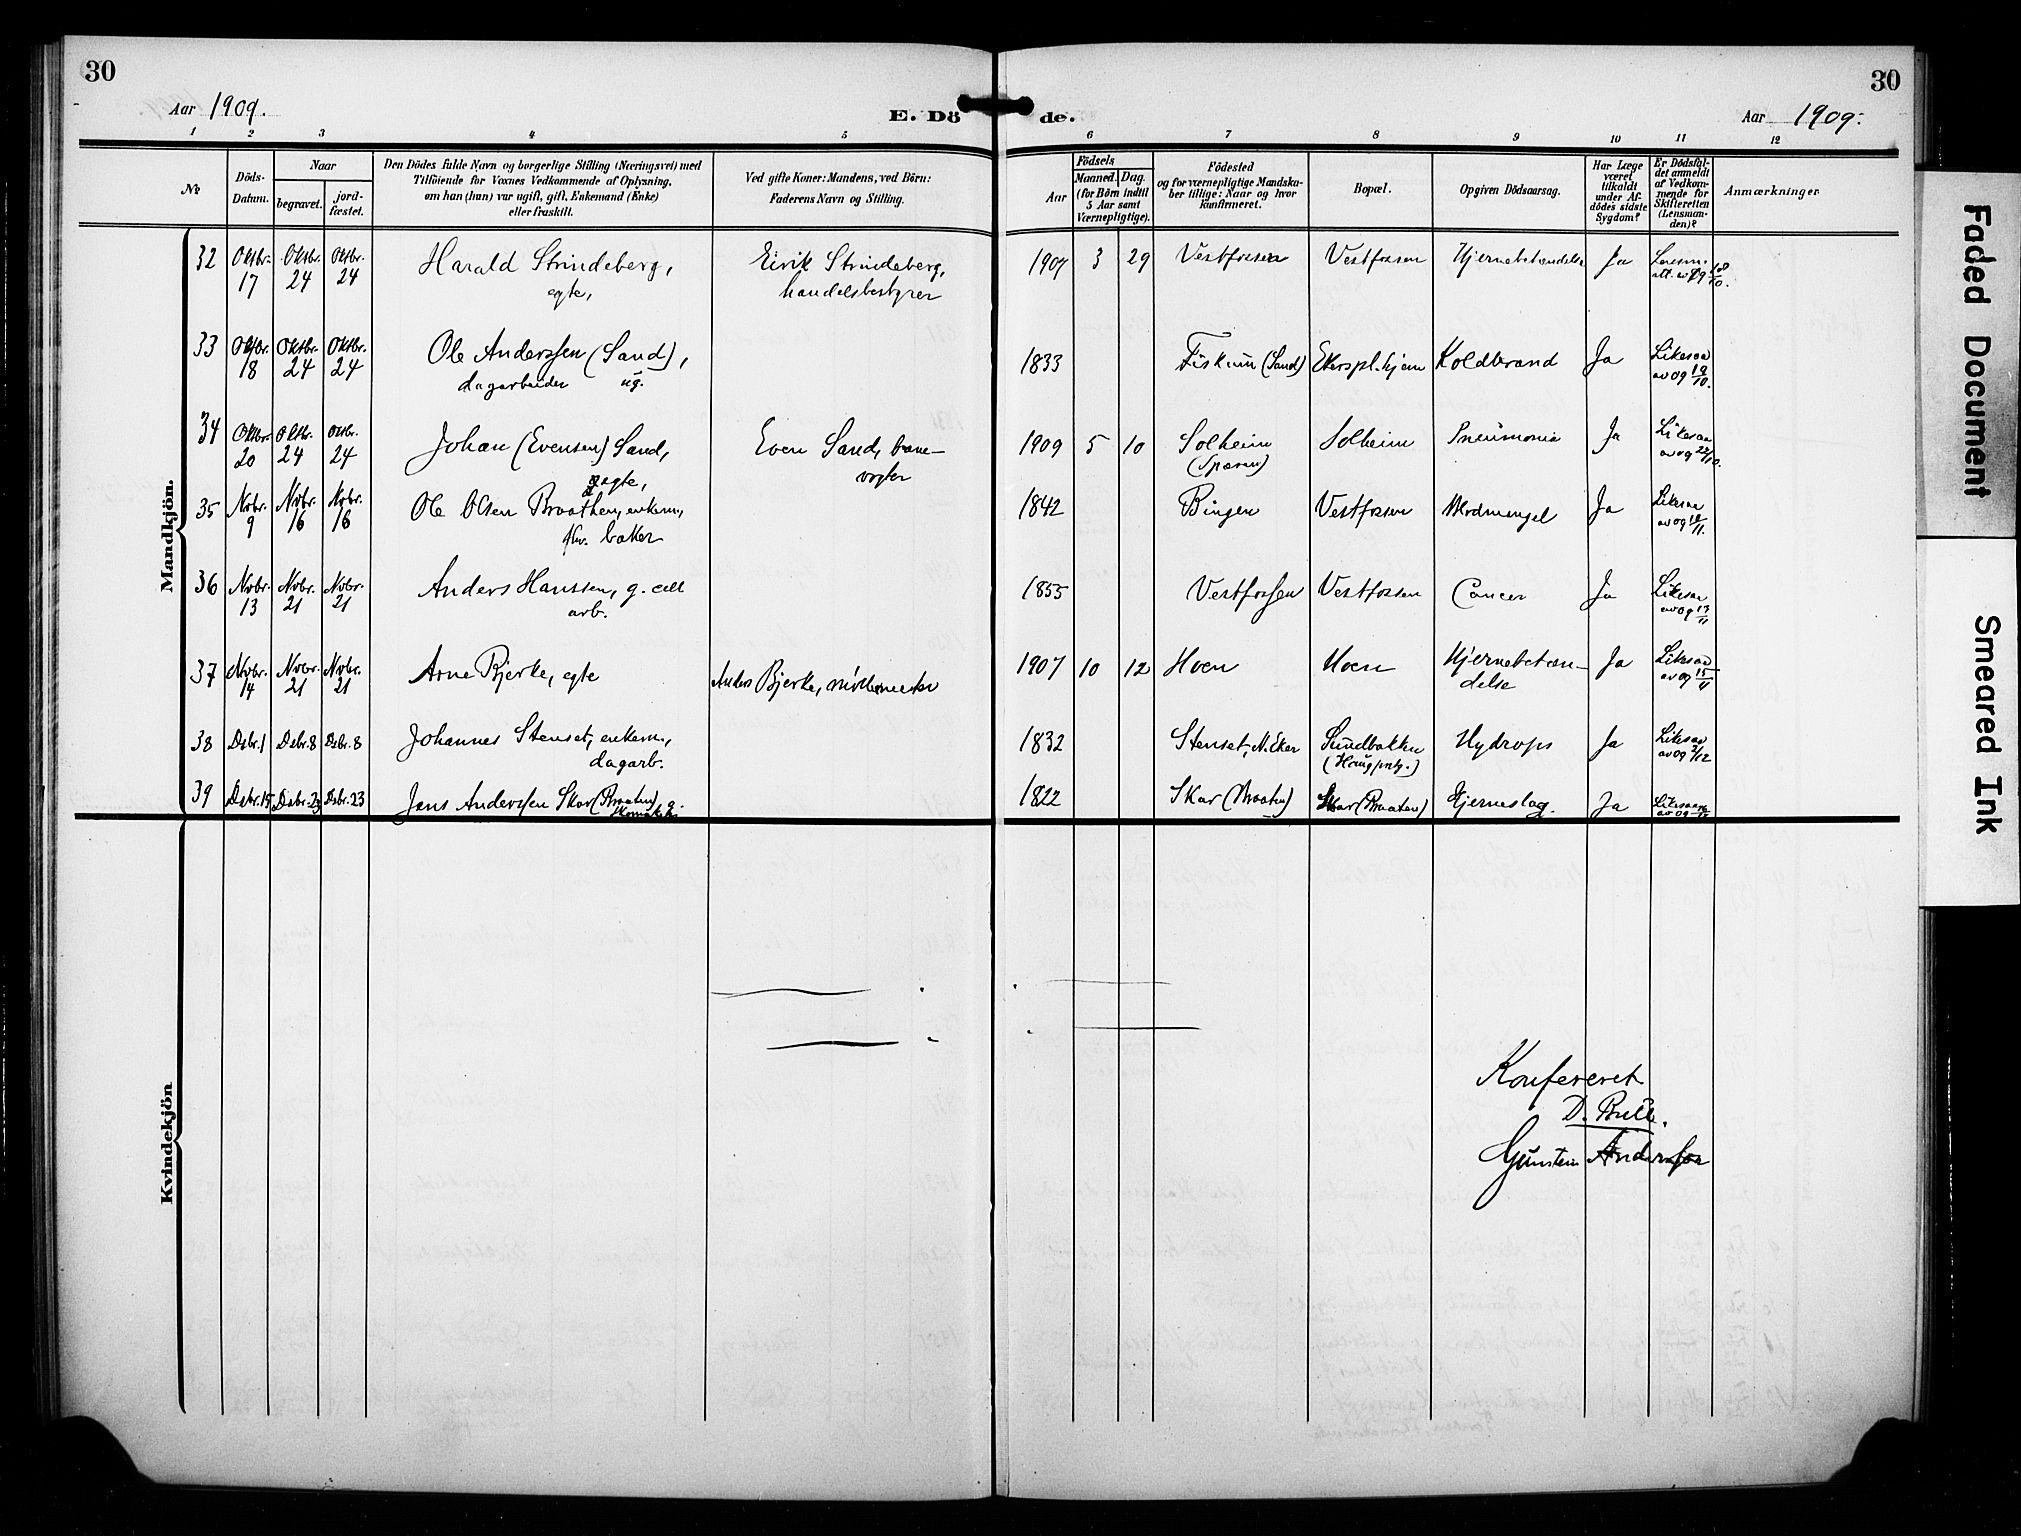 30
30
Aar 1909.
E. Döde.
Aar 1909.
1 2 3 4 5 6 7 8 9 10 11 12
No
Döds-
Datum.
Naar
begravet.
jord-
fæstet.
Den Dödes fulde Navn og borgerlige Stilling (Næringsvei) med
Tilföiende for Voxnes Vedkommende af Oplysning,
om han (hun) var ugift, gift, Enkemand (Enke)
eller fraskilt.
Ved gifte Koner: Mandens, ved Börn:
Faderens Navn og Stilling.
Födsels
Aar
Maaned. Dag.
(for Börn indtil
5 Aar samt
Værnepligtige).
Födested
og for værnepligtige Mandska-
ber tillige: Naar og hvor
konfirmeret.
Bopæl.
Opgiven Dödsaarsag.
Har Læge
været
tilkaldt
under Af-
dödes sidste
Sygdom?
Er Dödsfal-
det anmeldt
af Vedkom-
mende for
Skifteretten
(Lensman-
den)?
Anmærkninger
Mandkjön.
32 Oktbr. 17 Oktbr. 24 Oktbr. 24 Harald Strindeberg, Eirik Strindeberg, 1907 3 29 Vestfossen Vestfossen Hjernebetændelse Ja Lensm.
egte, handelsbestyrer att. av 09 18/10.
33 Oktbr. 18 Oktbr. 24 Oktbr. 24 Ole Anderssen (Sand), 1833 Fiskum (Sand) Ekers pl.hjem Koldbrand Ja Likesaa
dagarbeider ug. av 09 19/10.
34 Oktbr. 20 Oktbr. 24 Oktbr. 24 Johan (Evensen) Sand, Even Sand, bane- 1909 5 10 Solheim Solheim Pneumonia Ja Likesaa
egte, vogter av 09 22/10.
35 Nvbr. 9 Nvbr. 16 Nvbr. 16 Ole Olsen Braathen, enkem., 1842 Bingen Vestfossen Blodmangel Ja Likesaa
fhv. baker av 09
36 Nvbr. 13 Nvbr. 21 Nvbr. 21 Anders Hanssen, g. cell 1855 Vestfossen Vestfossen Cancer Ja Likesaa
arb. av 09 13/11
37 Nvbr. 14 Nvbr. 21 Nvbr. 21 Arne Bjerke, egte Anders Bjerke, möllemester 1907 10 12 Hoen Hoen Hjernebetæn- Ja Likesaa
delse av 09 15/11
38 Dsbr. 1 Dsbr. 8 Dsbr. 8 Johannes Stenset, enkem., 1832 Stenset, N. Eker Sundbakken Hydrops Ja Likesaa
dagarb. av 09 2/12
39 Dsbr. 15 Dsbr. 23 Dsbr. 23 Jens Anderssen Skar (Braaten) g. 1822 Skar (Braaten) Skar (Braaten) Hjerneslag. Ja Likesaa
av 09
Kvindekjön
Konfereret
D. Bull.
Gunstein Anderssen
Faded Document
Smeared Ink